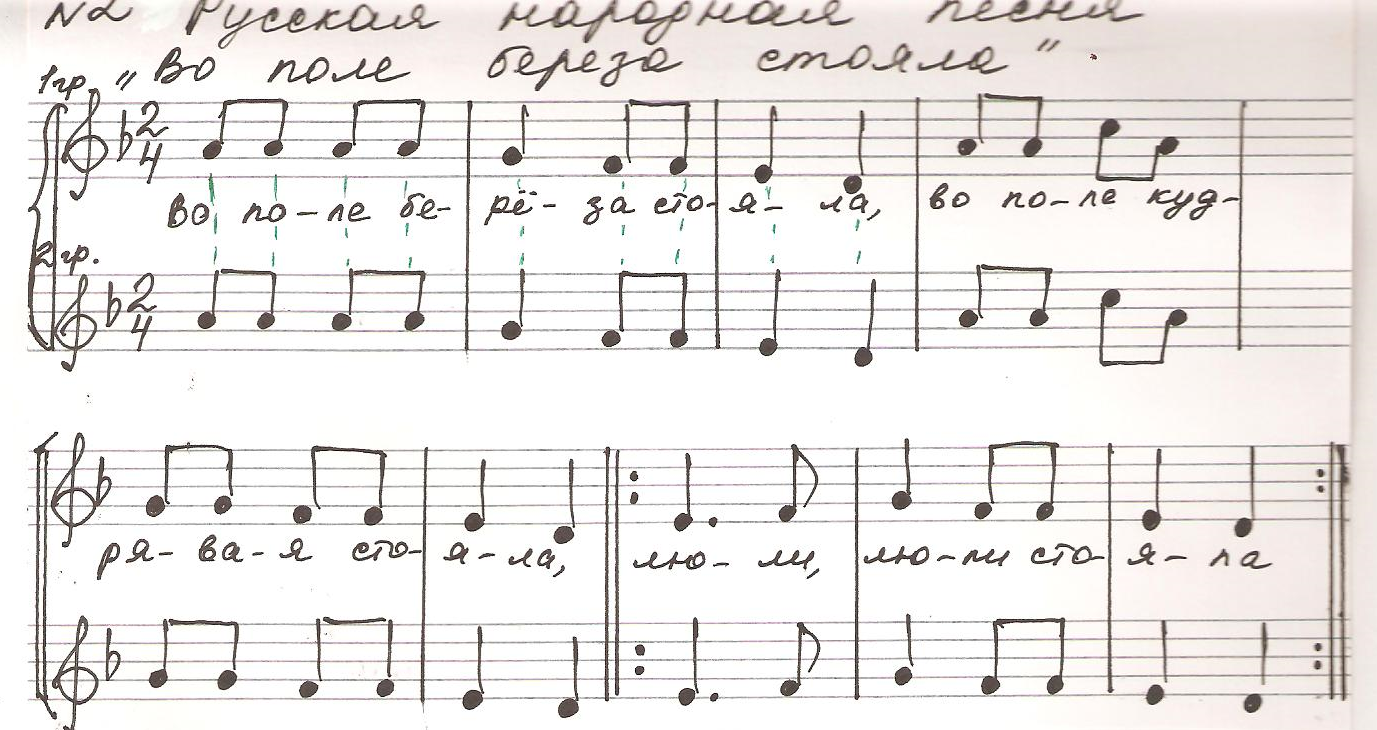 №2 Русская народная песня
1гр. „Во поле береза стояла".
2/4
Во по-ле бе- рё- за сто- я- ла, во по-ле куд-
2гр.
2/4
ря- ва-я сто- я-ла, лю- ли, лю-ли сто- я- ла